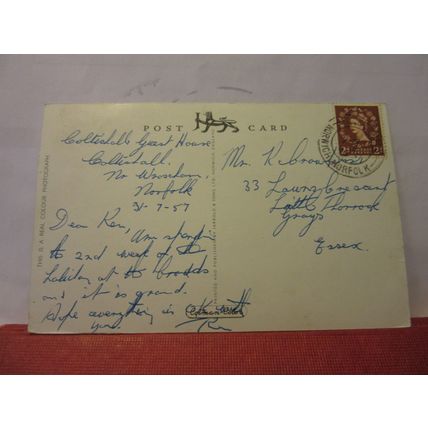 POST CARD
Coltishall Guest House,
Coltishall,
Nr Wroxham,
Norfolk
31-7-57
Dear Ken,
Am spending
the 2nd week of the
holiday at the broads
and it is grand.
Hope everything is O.K. with
you.
Ken
Mr. K.
33
Crescent
Little Thurrock
Grays
Essex.
THIS IS A REAL COLOUR PHOTOGRAPH
NORWICH NORFOLK
2D 2D